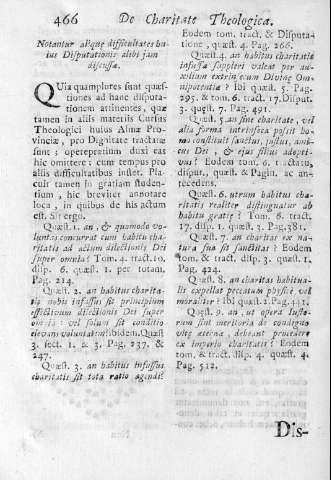 466 De Charitate Theologica.
Notantur aliquę difficultates hu-
ius Disputationis alibi jam
discussæ.
QUia quamplures sunt quæs-
tiones ad hanc disputa-
tionem attinentes, quæ
tamen in aliis materiis Cursus
Theologici huius Almæ Pro-
vinciæ, pro Dignitate tractatæ
sunt: operepretium duxi eas
hic omittere; cum tempus pro
aliis difficultatibus instet. Pla-
cuit tamen in gratiam studen-
tium, hic breviter annotare
loca, in quibus de his actum
est. Sit ergo.
Quæst. 1. an, & quomodo vo-
luntas concurrat cum habitu cha-
ritatis ad actum dilectionis Dei
super omnia? Tom. 4. tract. 10.
disp. 6. quæst. 1. per totam,
Pag. 214.
Quæst. 2. an habitus charita-
tis nobis infusus sit principium
effectivum dilectionis Dei super
omnia? vel solum sit conditio
elevans voluntatem? ibidem. Quæst
3. sect. 1. & 3. Pag. 237, &
247.
Quæst. 3. an habitus infusus
charitatis sit tota ratio agendi?
Eodem tom. tract. & Disputa-
tione, quæst. 4. Pag. 266.
Quæst. 4. an habitus charitatis
infusæ suppleri valeat per au-
xilium extrinsecum Divinę Om-
nipotentiæ? Ibi quæst. 5. Pag.
295. & tom. 6. tract. 17. Disput.
3. quæst. 7. Pag. 491.
Quæst. 5. an sine charitate, vel
alia forma intrinseca possit ho-
mo constitui sanctus, justus, ami-
cus Dei, & ejus filius adopti-
vus? Eodem tom. 6. tractatu,
disput., quæst. & Pagin. ac an-
tecedens.
Quæst. 6. utrum habitus cha-
ritatis realiter distinguatur ab
habitu gratię? Tom. 6. tract.
17. disp. 1. quæst. 3. Pag. 381.
Quæst. 7. an charitas ex na-
tura sua sit sanctitas? Eodem
tom. & tract. disp. 3. quæst. 1.
Pag. 424.
Quæst. 8. an charitas habitua-
lis expellat peccatum physicè vel
moraliter? Ibi quæst. 2. Pag. 441.
Quæst. 9. an, ut opera justo-
rum sint meritoria de condigno
vitę æternæ, debeant procedere
ex imperio charitatis? Eodem
tom. & tract. disp. 4. quæst. 4.
Pag. 512.
Dis-